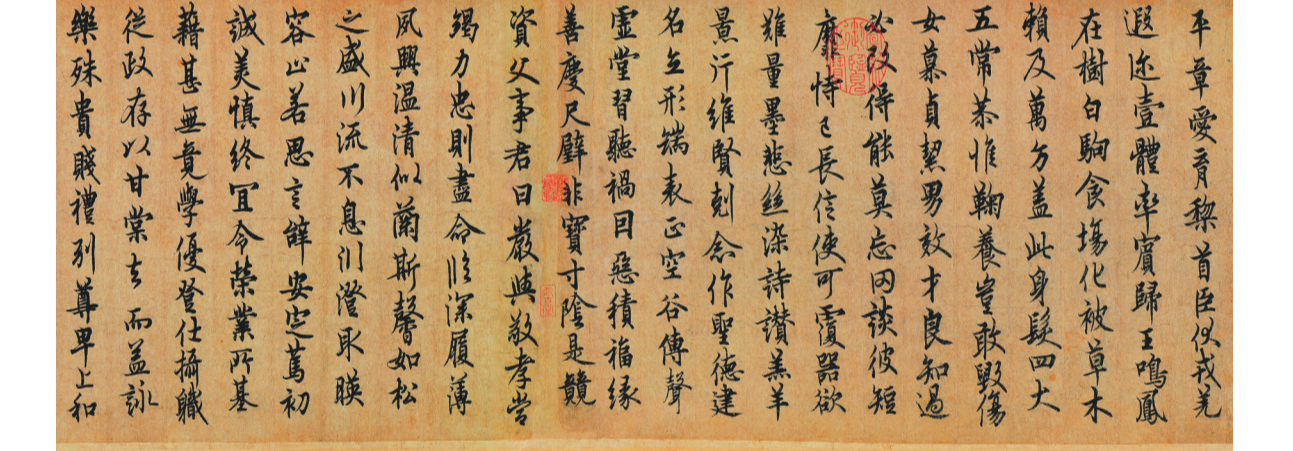 平章愛育黎首臣伏戎羌
遐迩壹體率賓歸王鳴鳳
在樹白駒食場化被草木
賴及萬方蓋此身髮四大
五常恭惟鞠養豈敢毀傷
女慕貞絜男效才良知過
必改得能莫忘罔談彼短
靡恃己長信使可覆器欲
難量墨悲絲染詩讚羔羊
景行維賢剋念作聖德建
名立形端表正空谷傳聲
虛堂習聽禍因惡積福緣
善慶尺璧非寶寸陰是競
資父事君曰嚴與敬孝當
竭力忠則盡命臨深履薄
夙興温清似蘭斯馨如松
之盛川流不息渊澄取暎
容止若思言辭安定篤初
誠美慎終宜令榮業所基
藉甚無竟學優登仕攝職
從政存以甘棠去而益詠
樂殊貴賤禮別尊卑上和